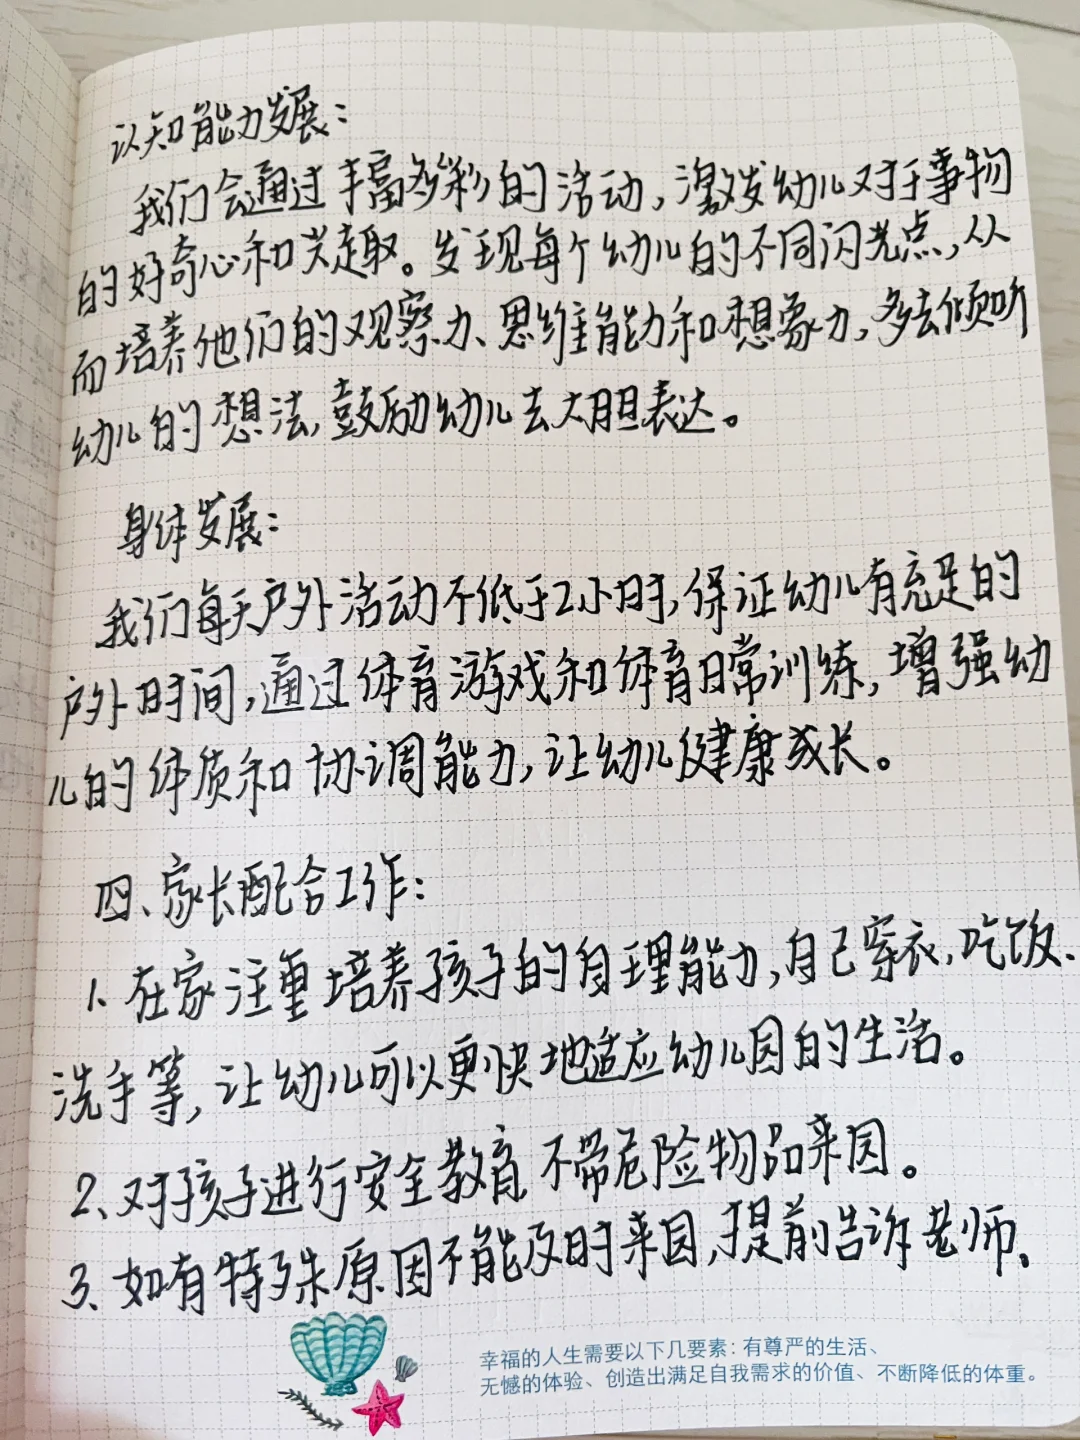 认知能力发展：
我们会通过丰富多彩的活动,激发幼儿对于事物
的好奇心和兴趣。发现每个幼儿的不同闪光点,从
而培养他们的观察力、思维能力和想象力,多去倾听
幼儿的想法,鼓励幼儿去大胆表达。
身体发展：
我们每天户外活动不低于2小时,保证幼儿有充足的
户外时间,通过体育游戏和体育日常训练,增强幼
儿的体质和协调能力,让幼儿健康成长。
四、家长配合工作：
1、在家注重培养孩子的自理能力,自己穿衣、吃饭、
洗手等,让幼儿可以更快地适应幼儿园的生活。
2、对孩子进行安全教育,不带危险物品来园。
3、如有特殊原因不能及时来园,提前告诉老师。
幸福的人生需要以下几要素：有尊严的生活、
无憾的体验、创造出满足自我需求的价值、不断降低的体重。